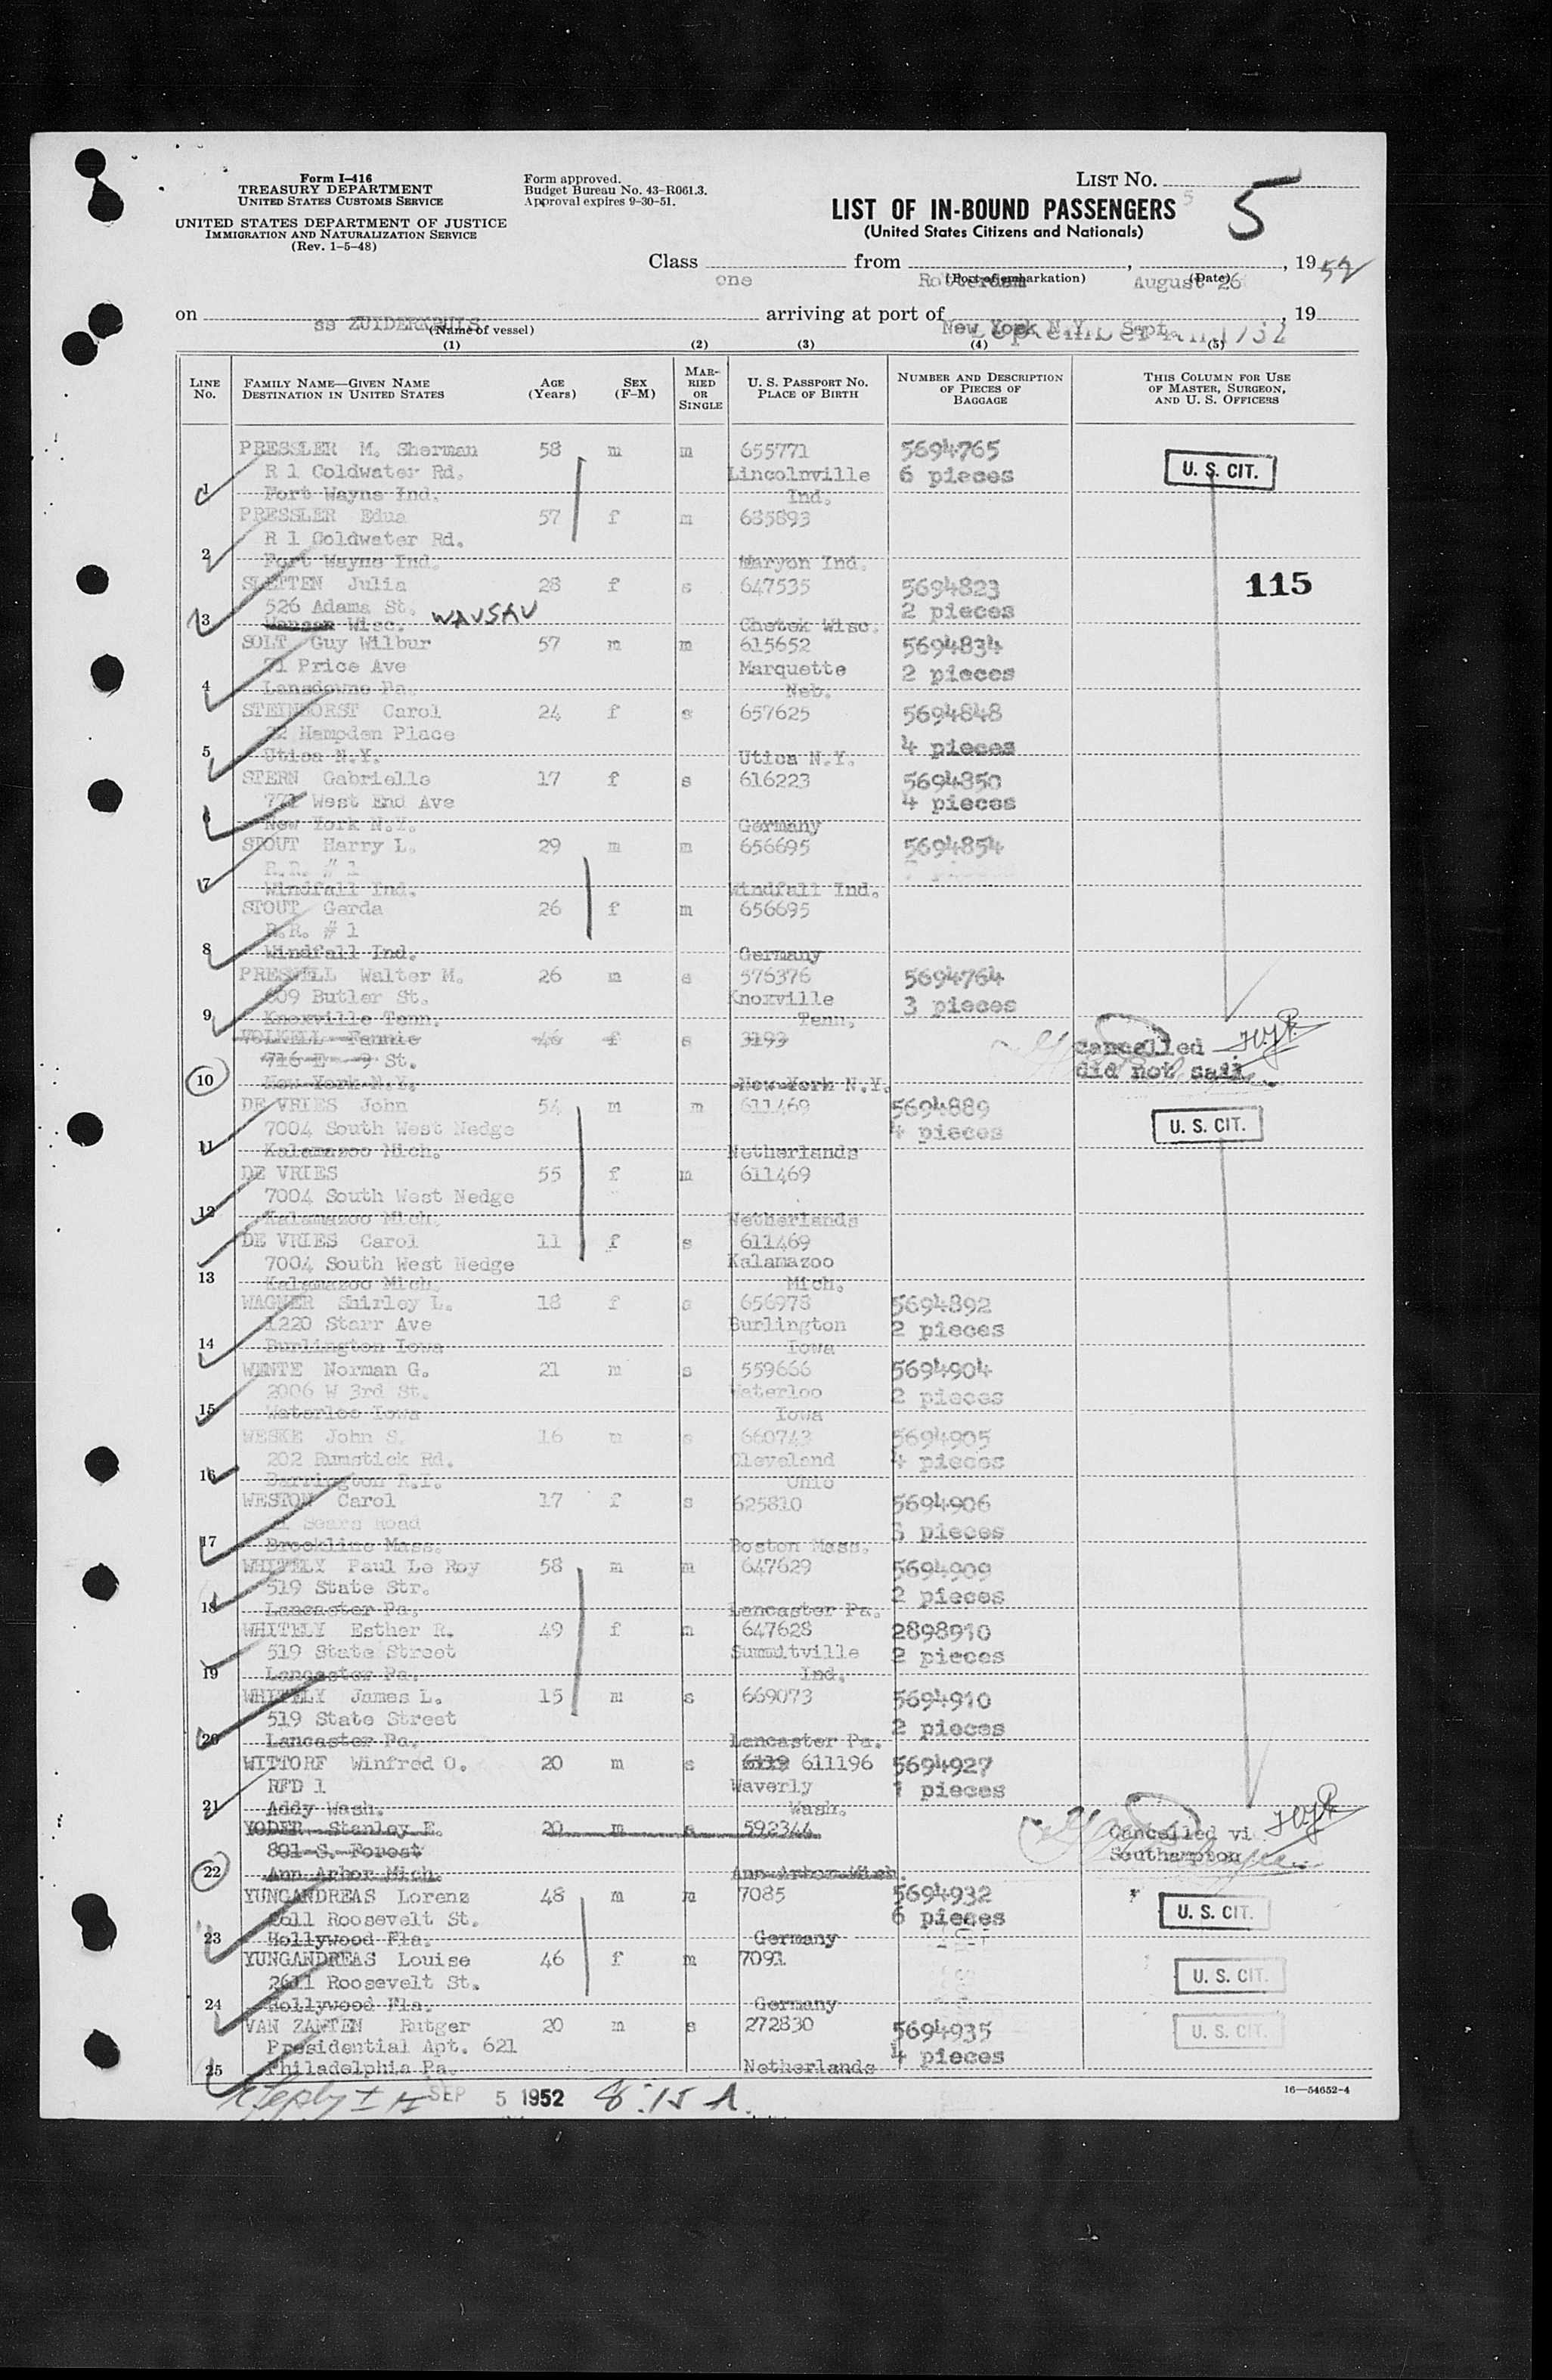 Form I-416
TREASURY DEPARTMENT
UNITED STATES CUSTOMS SERVICE
UNITED STATES DEPARTMENT OF JUSTICE
IMMIGRATION AND NATURALIZATION SERVICE
(Rev. 1-5-48)
Form approved.
Budget Bureau No. 43-R061.3.
Approval expires 9-30-51.
LIST NO. 5
5
LIST OF IN-BOUND PASSENGERS
(United States Citizens and Nationals)
Class one from Rotterdam, August 26, 1952
(Port of embarkation) (Date)
on ss ZUIDERKRUIS arriving at port of New York N.Y. Sept. , 19
(Name of vessel)
(1) (2) (3) (4) (5)
LINE No. FAMILY NAME—GIVEN NAME DESTINATION IN UNITED STATES AGE (Years) SEX (F-M) MARRIED OR SINGLE U. S. PASSPORT NO. PLACE OF BIRTH NUMBER AND DESCRIPTION OF PIECES OF BAGGAGE THIS COLUMN FOR USE OF MASTER, SURGEON, AND U. S. OFFICERS
PRESSLER M. Sherman 58 m m 655771 5694765
R 1 Coldwater Rd. Lincolnville 6 pieces U. S. CIT.
1 Fort Wayne Ind. Ind.
PRESSLER Edua 57 f m 635893
R 1 Coldwater Rd.
2 Fort Wayne Ind. Maryon Ind.
SLETTEN Julia 28 f s 647535 5694823 115
526 Adams St. WAUSAU 2 pieces
3 Wisc. Chetek Wisc.
SOLT Guy Wilbur 57 m m 615652 5694834
71 Price Ave Marquette 2 pieces
4 Lansdowne Pa. Neb.
STEINHORST Carol 24 f s 657625 5694848
22 Hampden Place 4 pieces
5 Utica N.Y. Utica N.Y.
STERN Gabrielle 17 f s 616223 5694850
771 West End Ave 4 pieces
6 New York N.Y. Germany
STOUT Harry L. 29 m m 656695 5694854
R.R. # 1
7 Windfall Ind. Windfall Ind.
STOUT Gerda 26 f m 656695
R.R. # 1
8 Windfall Ind. Germany
PRESNELL Walter M. 26 m s 576376 5694764
609 Butler St. Knoxville 3 pieces
9 Knoxville Tenn. Tenn.
VOLKELL Fannie 46 f s 3193 cancelled
716 E 9 St. did not sail
10 New York N.Y. New York N.Y.
DE VRIES John 54 m m 611469 5694889
7004 South West Nedge 4 pieces U. S. CIT.
11 Kalamazoo Mich. Netherlands
DE VRIES 55 f m 611469
7004 South West Nedge
12 Kalamazoo Mich. Netherlands
DE VRIES Carol 11 f s 611469
7004 South West Nedge Kalamazoo
13 Kalamazoo Mich. Mich.
WAGNER Shirley L. 18 f s 656978 5694892
1220 Starr Ave Burlington 2 pieces
14 Burlington Iowa Iowa
WENTE Norman G. 21 m s 559666 5694904
2006 W 3rd St. Waterloo 2 pieces
15 Waterloo Iowa Iowa
WESKE John S. 16 m s 660743 5694905
202 Rumstick Rd. Cleveland 4 pieces
16 Barrington R.I. Ohio
WESTON Carol 17 f s 625810 5694906
Sears Road pieces
17 Brookline Mass. Boston Mass.
WHITELY Paul Le Roy 58 m m 647629 5694909
519 State Str. 2 pieces
18 Lancaster Pa. Lancaster Pa.
WHITELY Esther R. 49 f m 647628 2898910
519 State Street Summitville 2 pieces
19 Lancaster Pa. Ind.
WHITELY James L. 15 m s 669073 5694910
519 State Street 2 pieces
20 Lancaster Pa. Lancaster Pa.
WITTORF Winfred O. 20 m s 6119 611196 5694927
RFD 1 Waverly 1 pieces
21 Addy Wash. Wash.
YODER Stanley E. 20 m s 592344 Cancelled vi
801 S. Forest Southampton
22 Ann Arbor Mich. Ann Arbor Mich.
YUNGANDREAS Lorenz 48 m m 7085 5694932
2611 Roosevelt St. 6 pieces U. S. CIT.
23 Hollywood Fla. Germany
YUNGANDREAS Louise 46 f m 7091
2611 Roosevelt St. U. S. CIT.
24 Hollywood Fla. Germany
VAN ZANTEN Rutger 20 m s 272830 5694935 U. S. CIT.
Presidential Apt. 621 4 pieces
25 Philadelphia Pa. Netherlands
SEP 5 1952 8:15 A.
16—54652-4